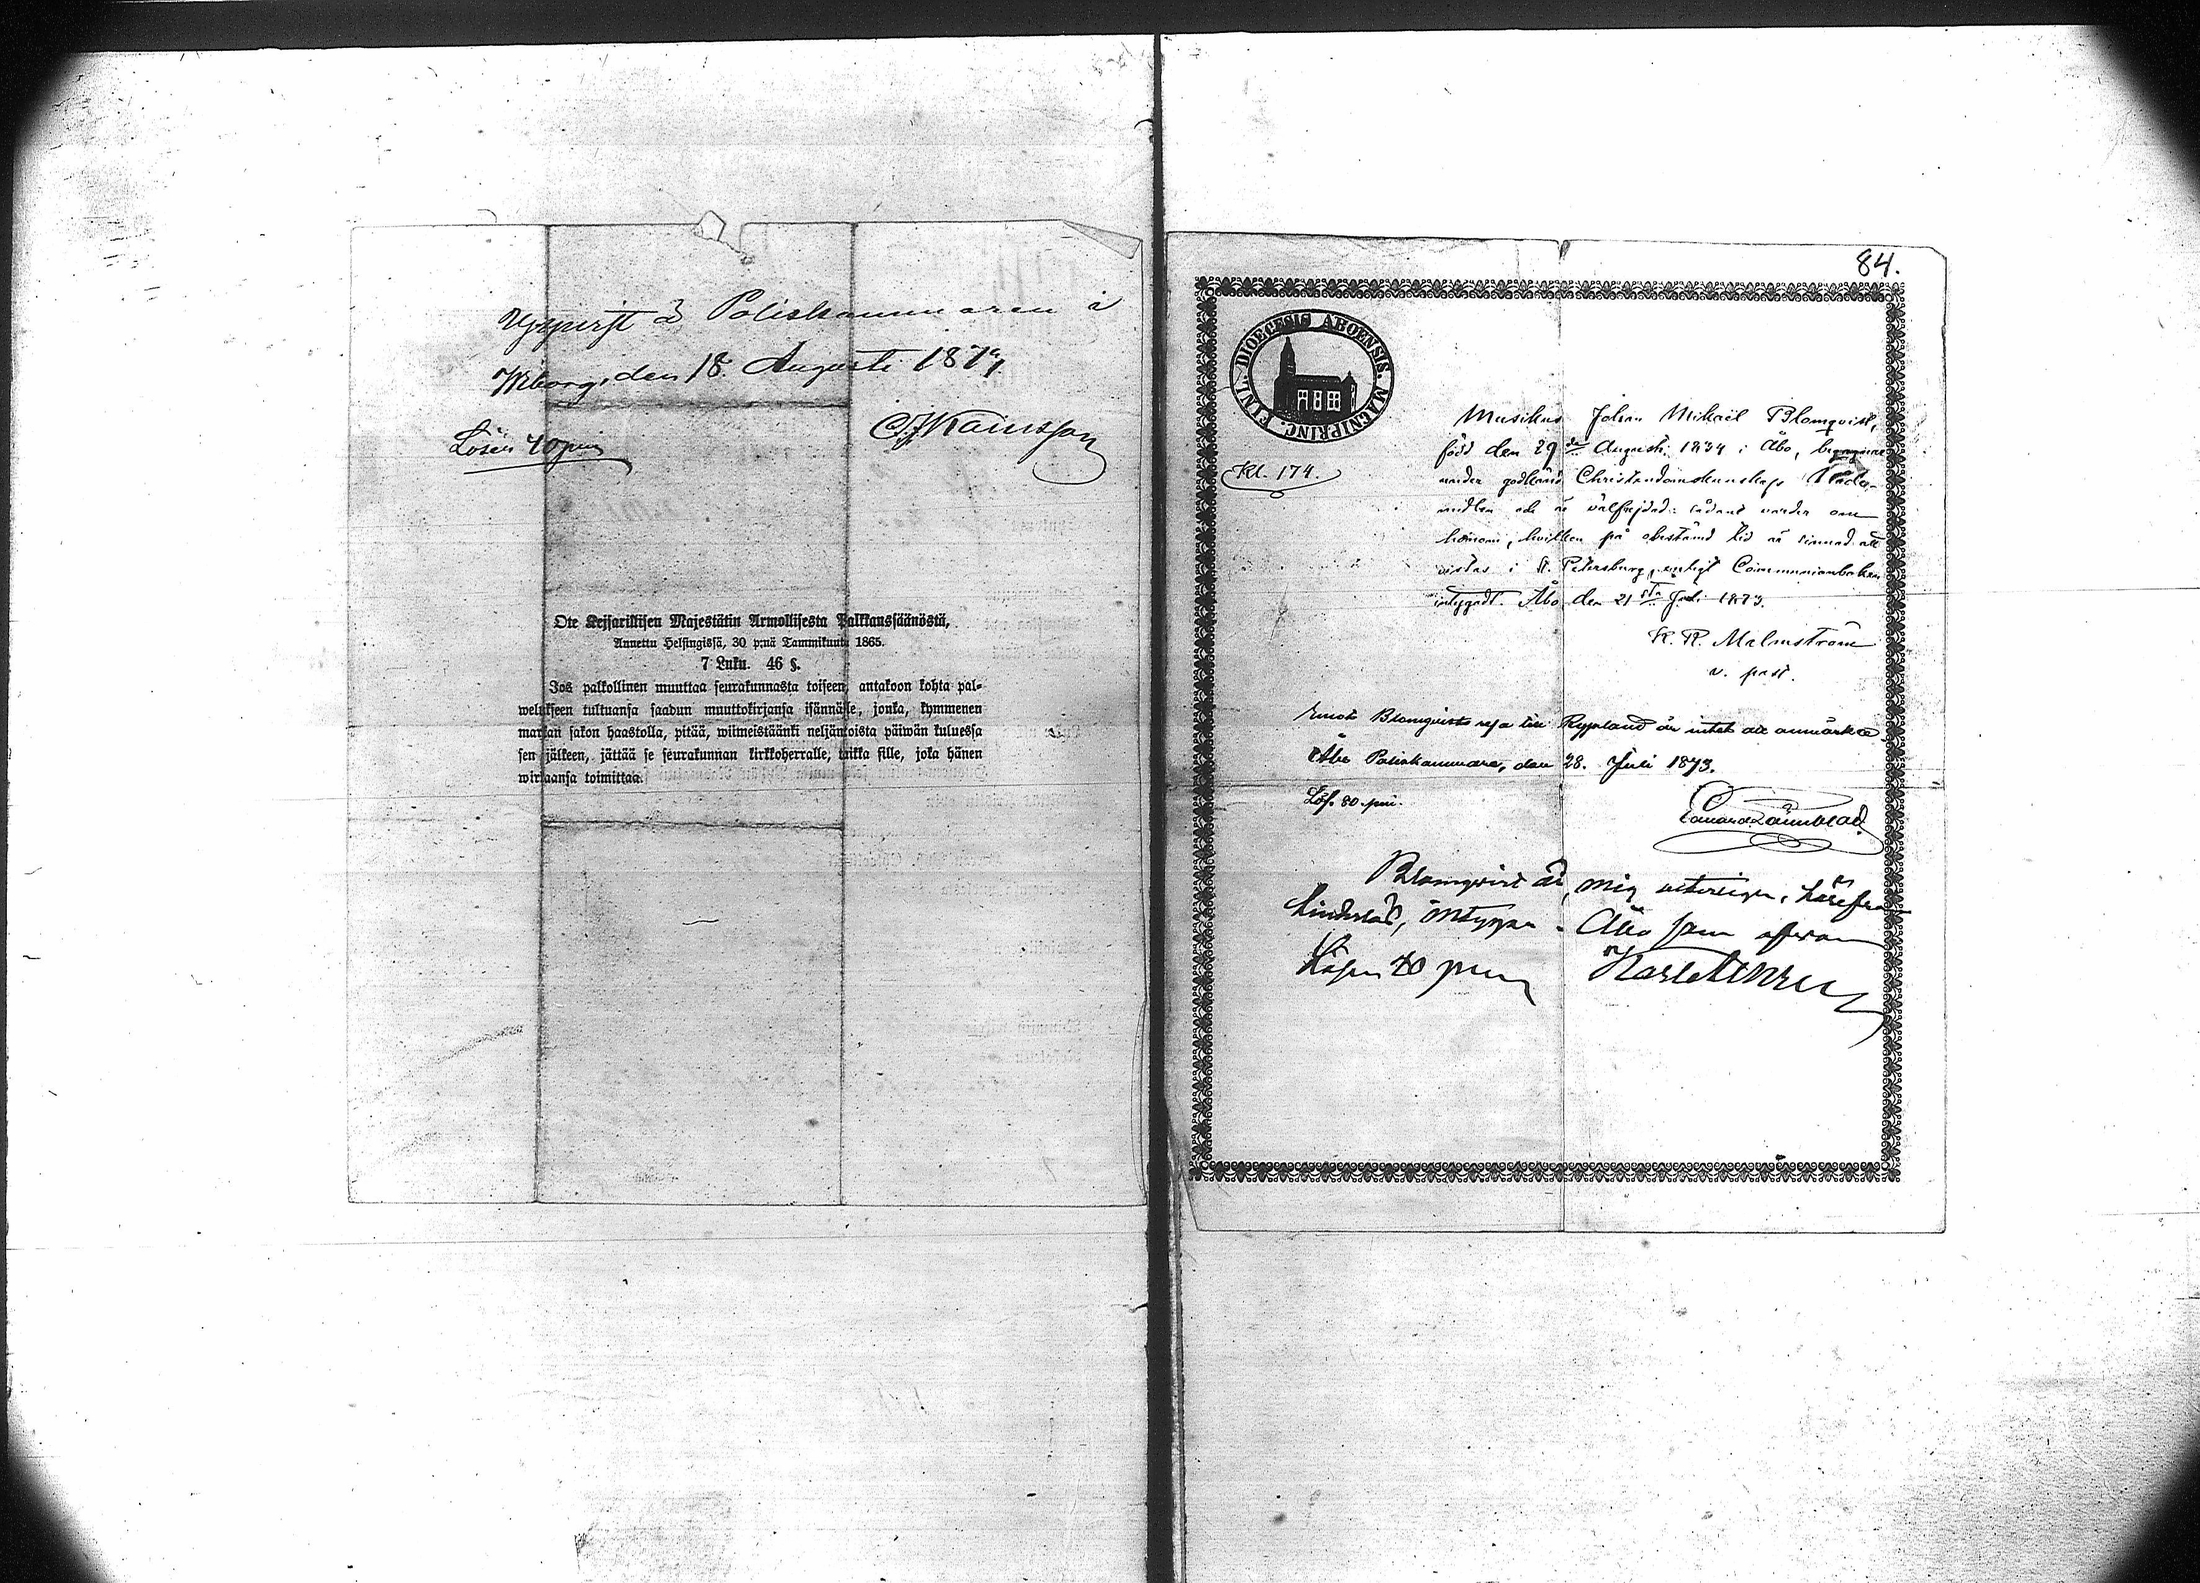 Uppvist å Poliskammaren i
Wiborg, den 18. Augusti 187
Lösen 40 pni
Ote Keisarillisen Majestätin Armollisesta Palkkaussäänöstä,
Annettu Helsingissä, 30 p:nä Tammikuuta 1865.
7 Luku. 46 §.
Jos palkollinen muuttaa seurakunnasta toiseen, antakoon kohta pal-
welukseen tultuansa saadun muuttokirjansa isännälle, jonka, kymmenen
markan sakon haastolla, pitää, wiimeistäänki neljäntoista päiwän kuluessa
sen jälkeen, jättää se seurakunnan kirkkoherralle, taikka sille, joka hänen
wirkaansa toimittaa.
84.
FINL. DIOECESIS ABOENSIS. MAGNIPRINC.
Kl. 174.
Musikus Johan Mikael Blomqvist,
född den 29de Augusti 1834 i Åbo, begagnar
under godkänd Christendomskunskap Nådu-
midlen och är välfrejdad: sådant varder om
honom, hvilken på obestämd tid är sinnad att
vistas i St. Petersburg, enligt Communionboken
intygadt. Åbo den 21sta Juli 1873.
K. R. Malmström
v. past.
Emot Blomqvists resa till Ryssland är intet att anmärka
Åbo Poliskammare, den 28. Juli 1873.
Lös. 80 pni.
Blomqvist är mig
Åbo som ofvan
Lösen 40 pni